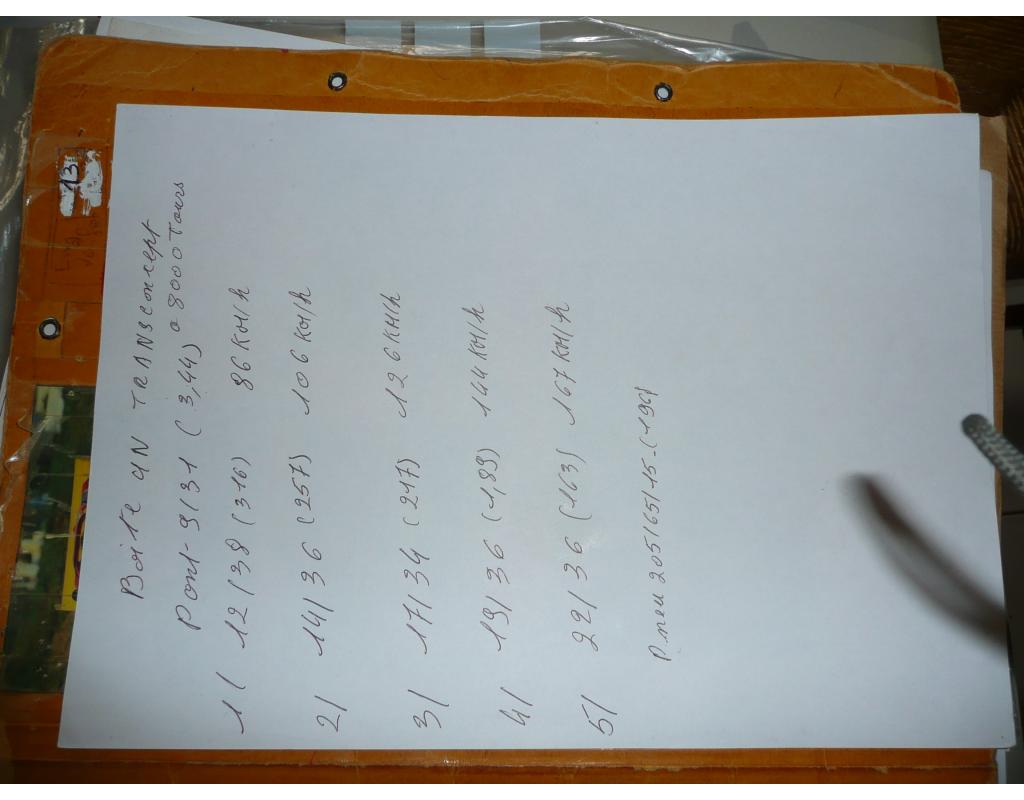 Boite UN TRANSconcept
Pont-9/31 (3,44) a 8000 Tours
1/ 12/38 (316) 86 KM/h
2/ 14/36 (257) 106 KM/h
3/ 17/34 (217) 126 KM/h
4/ 19/36 (1,89) 144 KM/h
5/ 22/36 (163) 167 KM/h
Pneu 205/65/15-(196)
13